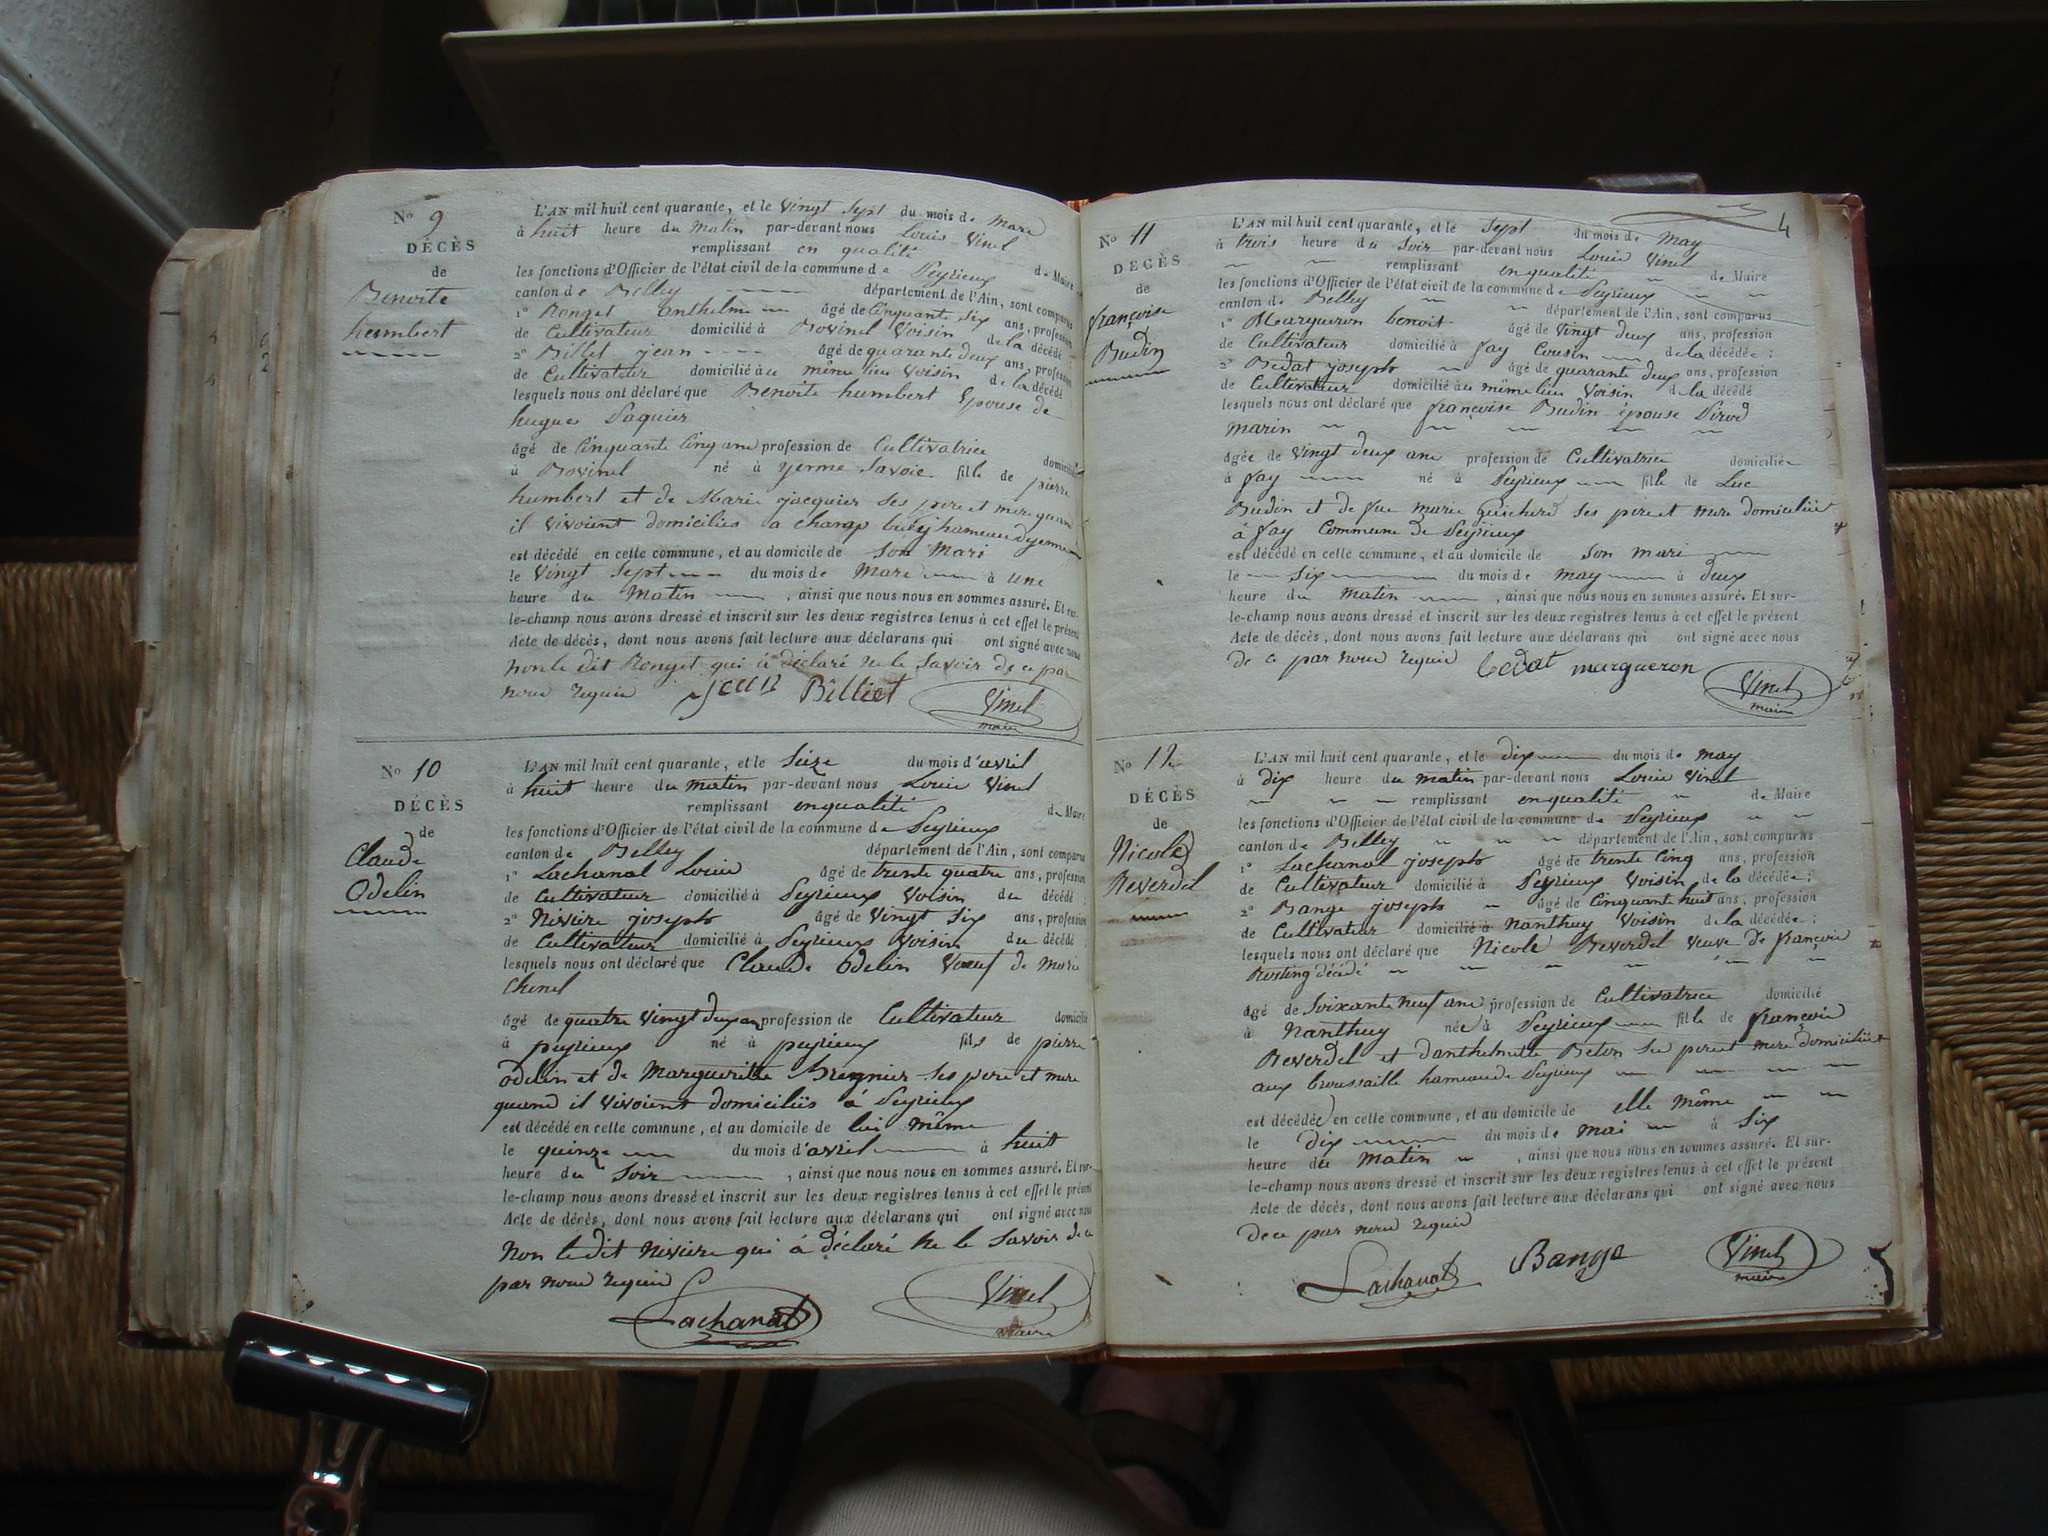 No 9
DÉCÈS
de
Benoite
humbert
L'AN mil huit cent quarante, et le vingt sept du mois de mars
à huit heure du matin par-devant nous Louis Vinel
remplissant en qualité de Maire
les fonctions d'Officier de l'état civil de la commune de Peyrieux
canton de Belley département de l'Ain, sont comparus
1° Ronget anthelme âgé de cinquante six ans, profession
de Cultivateur domicilié à Bovinel Voisin de la décédé
2° Billet jean âgé de quarante deux ans, profession
de Cultivateur domicilié au même lieu Voisin de la décédé
lesquels nous ont déclaré que Benoite humbert Epouse de
hugues Paquier
âgé de Cinquante Cinq ans profession de Cultivatrice domicilié
à Bovinel né à yenne Savoie fille de pierre
humbert et de Marie jacquier ses pere et mere quand
il vivoient domiciliés a champ hameau dyenne
est décédé en cette commune, et au domicile de son Mari
le Vingt Sept du mois de Mars à une
heure du Matin, ainsi que nous nous en sommes assuré. Et sur-
le-champ nous avons dressé et inscrit sur les deux registres tenus à cet effet le présent
Acte de décès, dont nous avons fait lecture aux déclarans qui ont signé avec nous
non le dit Ronget qui à déclaré ne le Savoir de ce par
nous requis jean Billiet Vinel
maire
No 10
DÉCÈS
de
Claude
Odelin
L'AN mil huit cent quarante, et le Seize du mois d'avril
à huit heure du matin par-devant nous Louis Vinel
remplissant en qualité de Maire
les fonctions d'Officier de l'état civil de la commune de Peyrieux
canton de Belley département de l'Ain, sont comparus
1° Lachanal Louis âgé de trente quatre ans, profession
de Cultivateur domicilié à Peyrieux Voisin du décédé
2° Nivière joseph âgé de Vingt Six ans, profession
de Cultivateur domicilié à Peyrieux Voisin du décédé
lesquels nous ont déclaré que Claude Odelin Veuf de Marie
Chinel
âgé de quatre Vingt deux an profession de Cultivateur domicilié
à peyrieux né à peyrieux fils de pierre
Odelin et de Margueritte Bregnier ses pere et mere
quand il vivoient domiciliés à Peyrieux
est décédé en cette commune, et au domicile de lui même
le quinze du mois d'avril à huit
heure du Soir, ainsi que nous nous en sommes assuré. Et sur-
le-champ nous avons dressé et inscrit sur les deux registres tenus à cet effet le présent
Acte de décès, dont nous avons fait lecture aux déclarans qui ont signé avec nous
Non le dit nivière qui à déclaré ne le Savoir de ce
par nous requis
Lachanal Vinel
maire
4
No 11
DÉCÈS
de
françoise
Budin
L'AN mil huit cent quarante, et le Sept du mois de may
à trois heure du Soir par-devant nous Louis Vinel
remplissant en qualité de Maire
les fonctions d'Officier de l'état civil de la commune de Peyrieux
canton de Belley département de l'Ain, sont comparus
1° Margueron benoit âgé de Vingt deux ans, profession
de Cultivateur domicilié à fay Cousin de la décédée ;
2° Bedat joseph âgé de quarante deux ans, profession
de Cultivateur domicilié au même lieu Voisin de la décédé
lesquels nous ont déclaré que françoise Budin épouse Pirod
marin
âgée de Vingt deux ans profession de Cultivatrice domiciliée
à fay né à Peyrieux fille de Luc
Budin et de fue marie ses pere et mere domiciliés
à fay Commune de Peyrieux
est décédé en cette commune, et au domicile de son mari
le six du mois de may à deux
heure du matin, ainsi que nous nous en sommes assuré. Et sur-
le-champ nous avons dressé et inscrit sur les deux registres tenus à cet effet le présent
Acte de décès, dont nous avons fait lecture aux déclarans qui ont signé avec nous
de ce par nous requis bedat margueron Vinel
maire
No 12
DÉCÈS
de
Nicole
Reverdel
L'AN mil huit cent quarante, et le dix du mois de may
à dix heure du matin par-devant nous Louis Vinel
remplissant en qualité de Maire
les fonctions d'Officier de l'état civil de la commune de Peyrieux
canton de Belley département de l'Ain, sont comparus
1° Lachanal joseph âgé de trente cinq ans, profession
de Cultivateur domicilié à Peyrieux Voisin de la décédée ;
2° Bange joseph âgé de Cinquante huit ans, profession
de Cultivateur domicilié à Nanthuy Voisin de la décédée ;
lesquels nous ont déclaré que Nicole Reverdel veuve de françois
Rosting décédé
âgé de Soixante neuf ans profession de Cultivatrice domicilié
à Nanthuy née à Peyrieux fille de françois
Reverdel et danthelmette Beton ses pere et mere domiciliés
aux broussaille hameau de Peyrieux
est décédée en cette commune, et au domicile de elle même
le dix du mois de mai à six
heure du matin, ainsi que nous nous en sommes assuré. Et sur-
le-champ nous avons dressé et inscrit sur les deux registres tenus à cet effet le présent
Acte de décès, dont nous avons fait lecture aux déclarans qui ont signé avec nous
de ce par nous requis
Lachanal Bange Vinel
maire